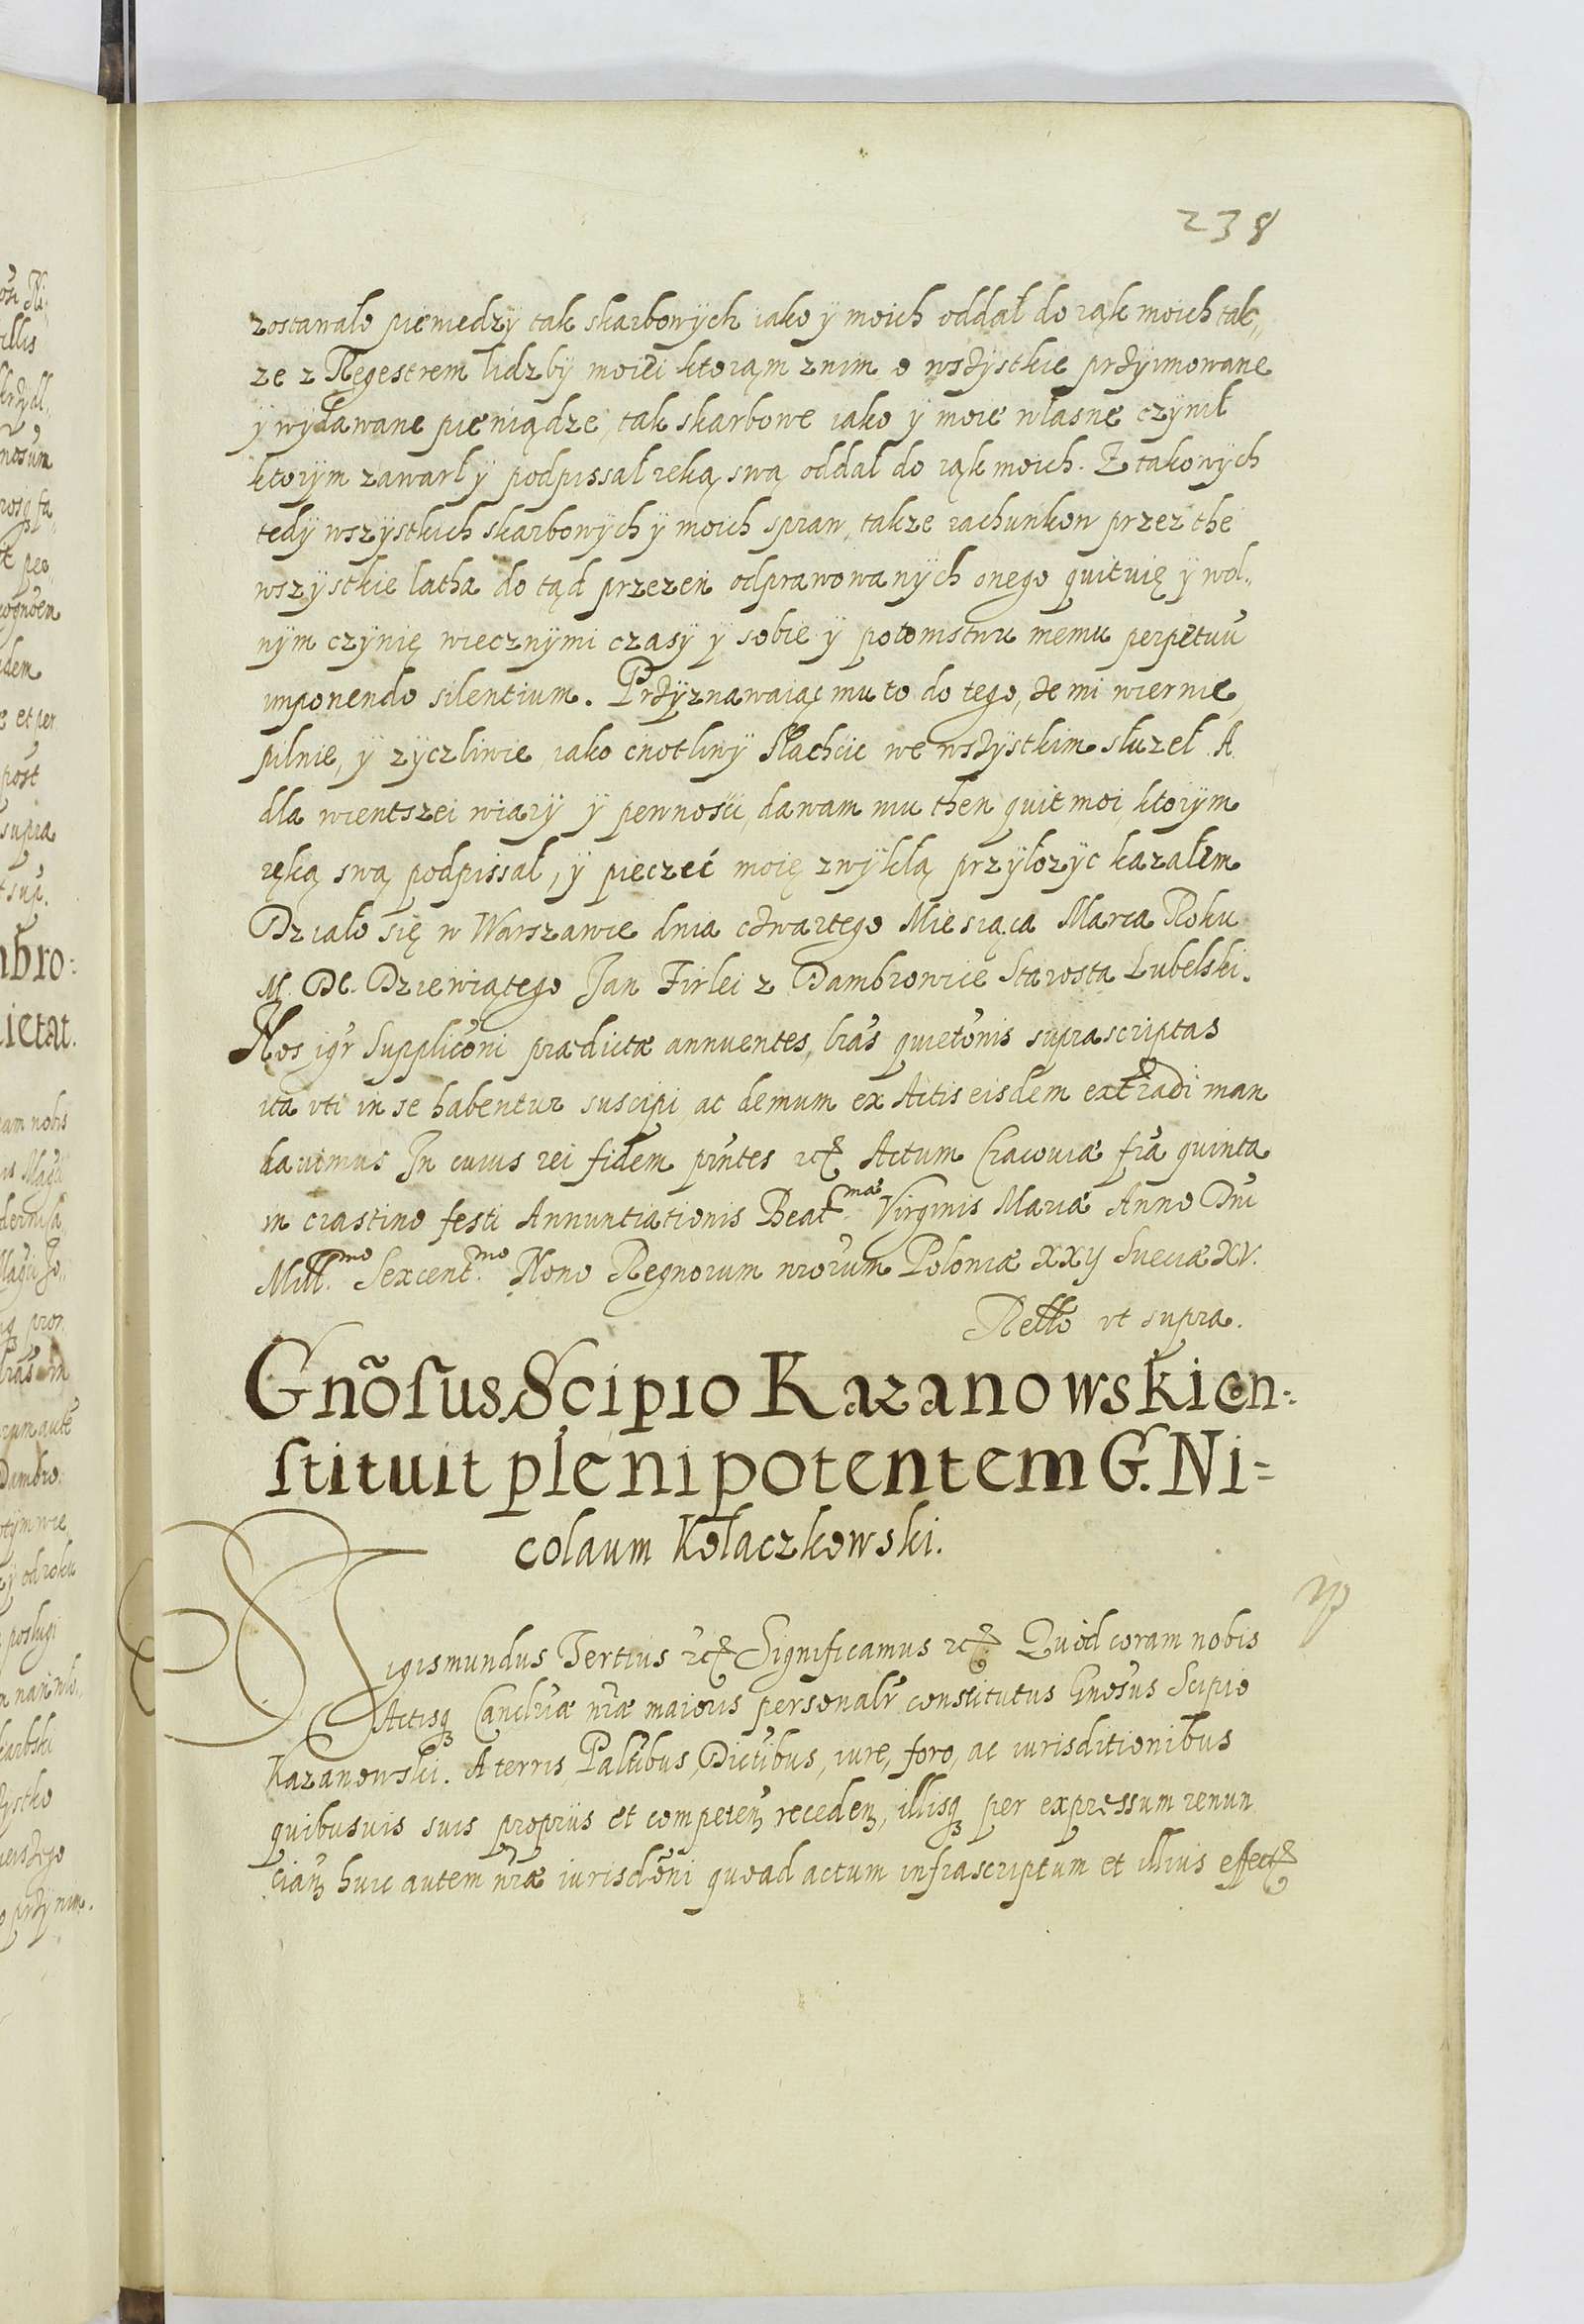 238
zostawało pieniedzy tak skarbowych iako y moich oddał do rąk moich tak„
ze z Regestrem lidzby moiei ktorąm znim o wszystkie przyimowane
y wydawane pieniądze, tak skarbowe iako y moie własne czynił
ktorym zawarł y podpissał reką swą oddał do rąk moich. Z takowych
tedy wszystkich skarbowych y moich spraw, takze rachunkow przez the
wszystkie latha do tąd przezeń odprawowanych onego quituię y wol„
nym czynię wiecznymi czasy y sobie y potomstwu memu perpetuũ
imponendo silentium. Przyznawaiąc mu to do tego, że mi wiernie,
pilnie, y zyczliwie, iako cnotliwy Slachcic we wszystkim słuzeł. A
dla wientszei wiary y pewnosci, dawam mu then quit moi, ktorym
ręką swą podpissał, y pieczeć moię zwykłą przyłozyc kazałem
Działo się w Warszawie dnia czwartego Miesiąca Marca Roku
M. DC. Dziewiątego Jan Firlei z Dambrowice Starosta Lubelski.
Nos igr̃ Supplicõni prædictæ annuentes, lrãs quietõnis suprascriptas
ita uti in se habentur suscipi, ac demum ex Actis eisdem extradi man
davimus In cuius rei fidem prñtes etc̃ Actum Cracoviæ friã quinta
in crastino festi Annuntiationis Beat.mæ Virginis Mariæ Anno Dnĩ
Mill.mo Sexcent.mo Nono Regnorum nrorũm Poloniæ XXij Sueciæ XV.
Relło ut supra.
Gnõsus Scipio Kazanowski con-
stituit plenipotentem G. Ni=
colaum Kołaczkowski.
Sigismundus Tertius etc̃ Significamus etc̃. Quòd coram nobis
Actisq̃ Cancllriæ nr̃æ maioris personalr̃ constitutus Gnosũs Scipio
Kazanowski. A terris, Paltĩbus, Distĩbus, iure, foro, ac iurisditionibus
quibusvis suis propriis et competeñ receden̄, illisq̃ per expressum renun
cian̄ huic autem nr̃æ iurisdõni quoad actum infrascriptum et illius effect̃